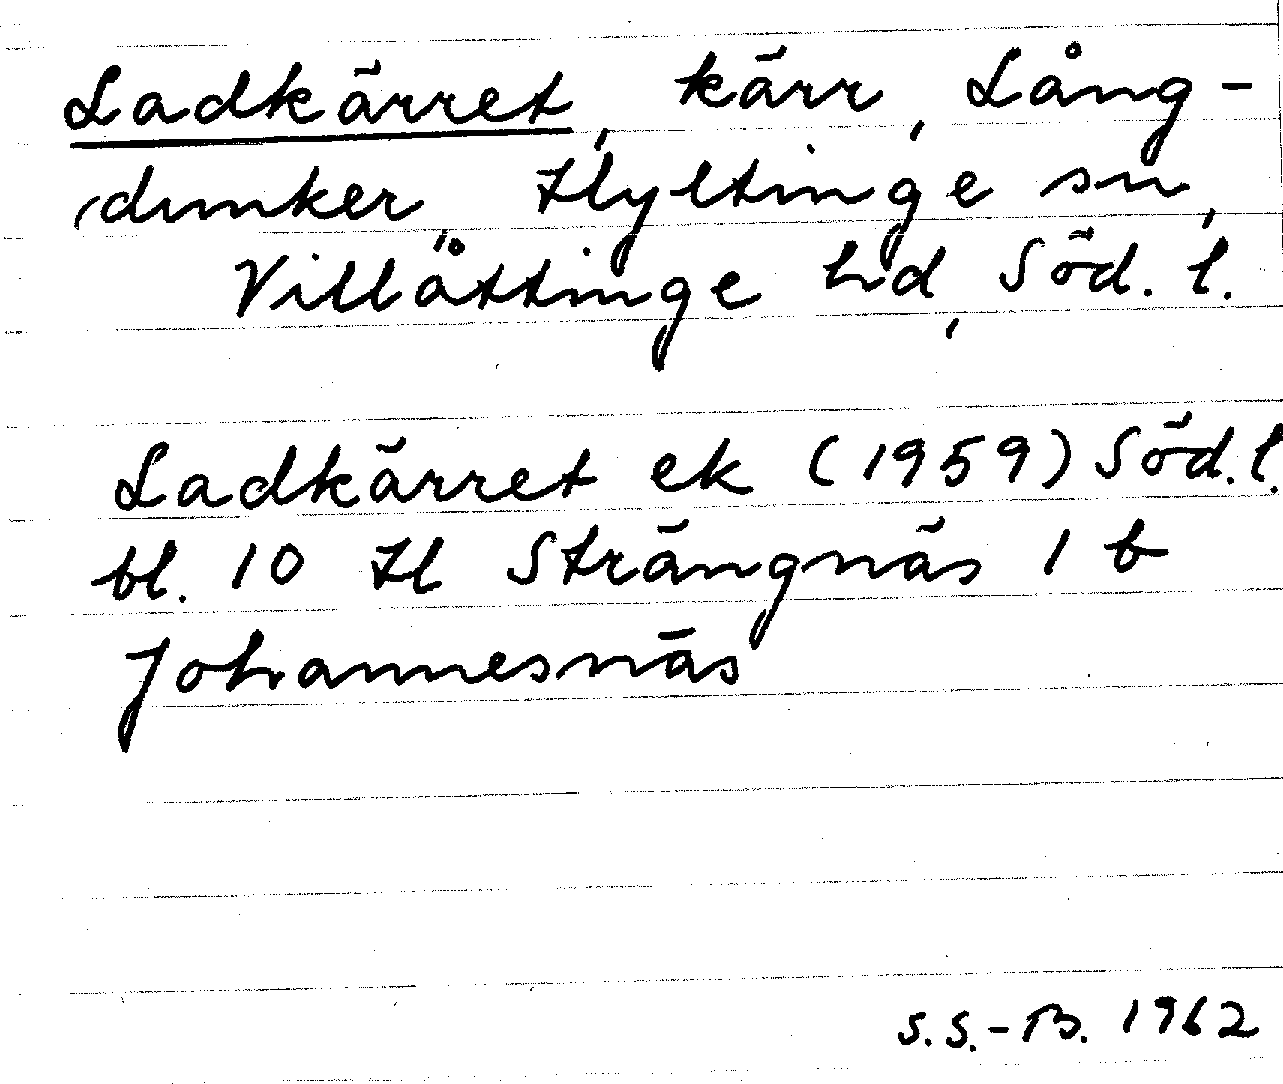 Ladkärret, kärr, Lång-
dunker, Hyltinge sn,
Villåttinge hd, Söd. l.
Ladkärret ek (1959) Söd. l.
bl. 10 H Strängnäs 1 b
Johannesnäs
S.S.-B. 1962